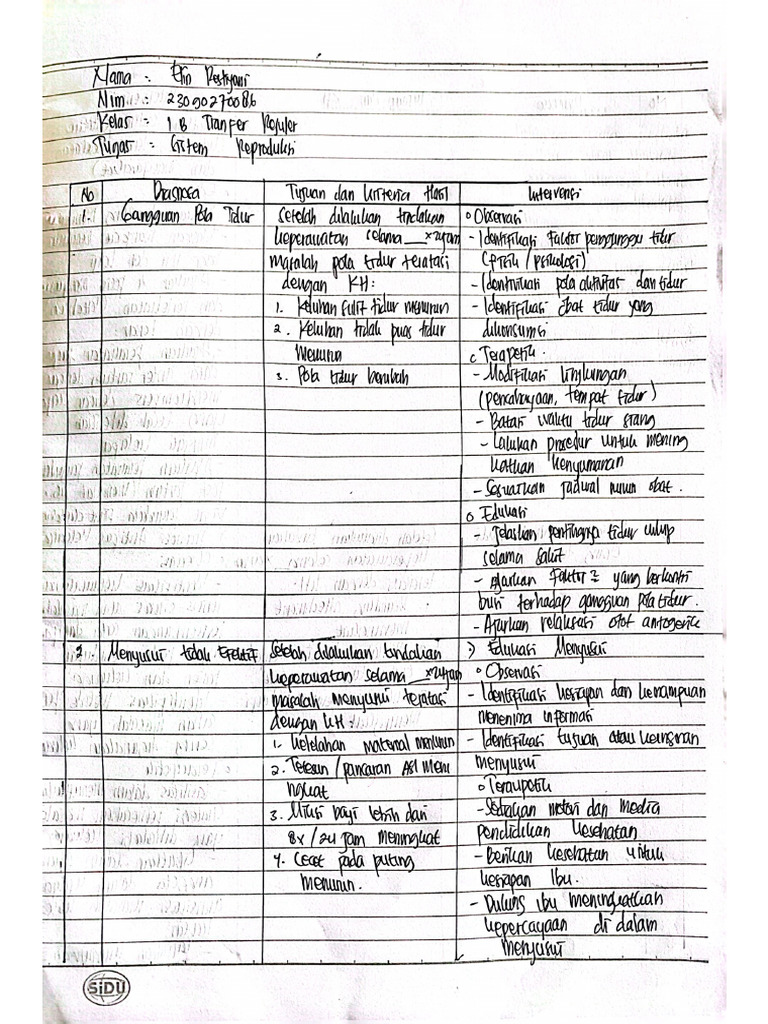 Nama : Elin Restiyani
Nim : 23090270086
Kelas : 1 B Tranfer Reguler
Tugas : Sistem Reproduksi
No
Diagnosa
Tujuan dan Kriteria Hasil
Intervensi
1.
Gangguan Pola Tidur
Setelah dilakukan tindakan
keperawatan selama __x24jam
masalah pola tidur teratasi
dengan KH:
1. Keluhan sulit tidur menurun
2. Keluhan tidak puas tidur
Menurun
3. Pola tidur berubah
o Observasi
- Identifikasi Faktor pengganggu tidur
(Fisik / psikologi)
- Identifikasi pola aktivitas dan tidur
- Identifikasi Obat tidur yang
dikonsumsi
o Terapetik.
- Modifikasi lingkungan
(pencahayaan, tempat tidur)
- Batasi waktu tidur siang
- Lakukan prosedur untuk mening
katkan kenyamanan
- Sesuaikan jadwal minum obat.
o Edukasi
- Jelaskan pentingnya tidur cukup
selama sakit
- Ajarkan Faktor2 yang berkontri
busi terhadap gangguan pola tidur.
- Ajarkan relaksasi otot autogenic
2.
Menyusui tidak Efektif
Setelah dilakukan tindakan
keperawatan selama __x24jam
masalah menyusui teratasi
dengan KH:
1. kelelahan Material menurun
2. Tetesan / pancaran ASI Meni
ngkat
3. Miksi bayi lebih dari
8x / 24 jam meningkat
4. Lecet pada puting
menurun.
:) Edukasi Menyusui
o Observasi
- Identifikasi kesiapan dan kemampuan
menerima informasi
- Identifikasi tujuan atau keinginan
menyusui
o Teraupetik
- Sediakan materi dan media
pendidikan kesehatan
- Berikan kesehatan untuk
kesiapan Ibu.
- Dukung ibu meningkatkan
kepercayaan di dalam
menyusui
SiDU